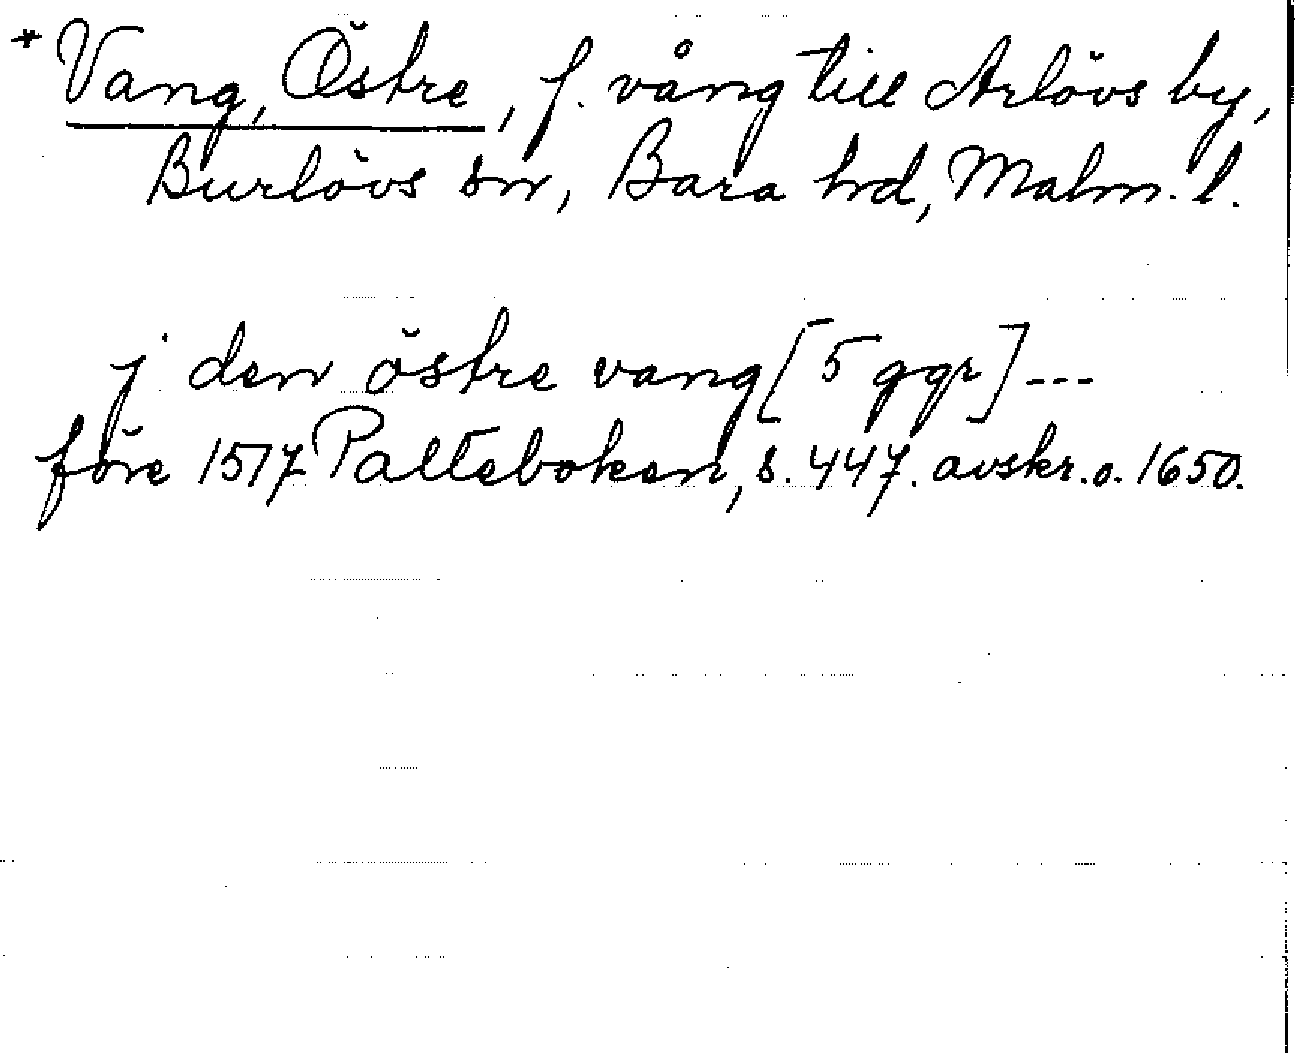 + Vang, Östre, f. vång till Arlövs by,
Burlövs sn, Bara hd, Malm. l.
j den östre vang [5 ggr] ---
före 1517 Palteboken, s. 447. avskr. o. 1650.